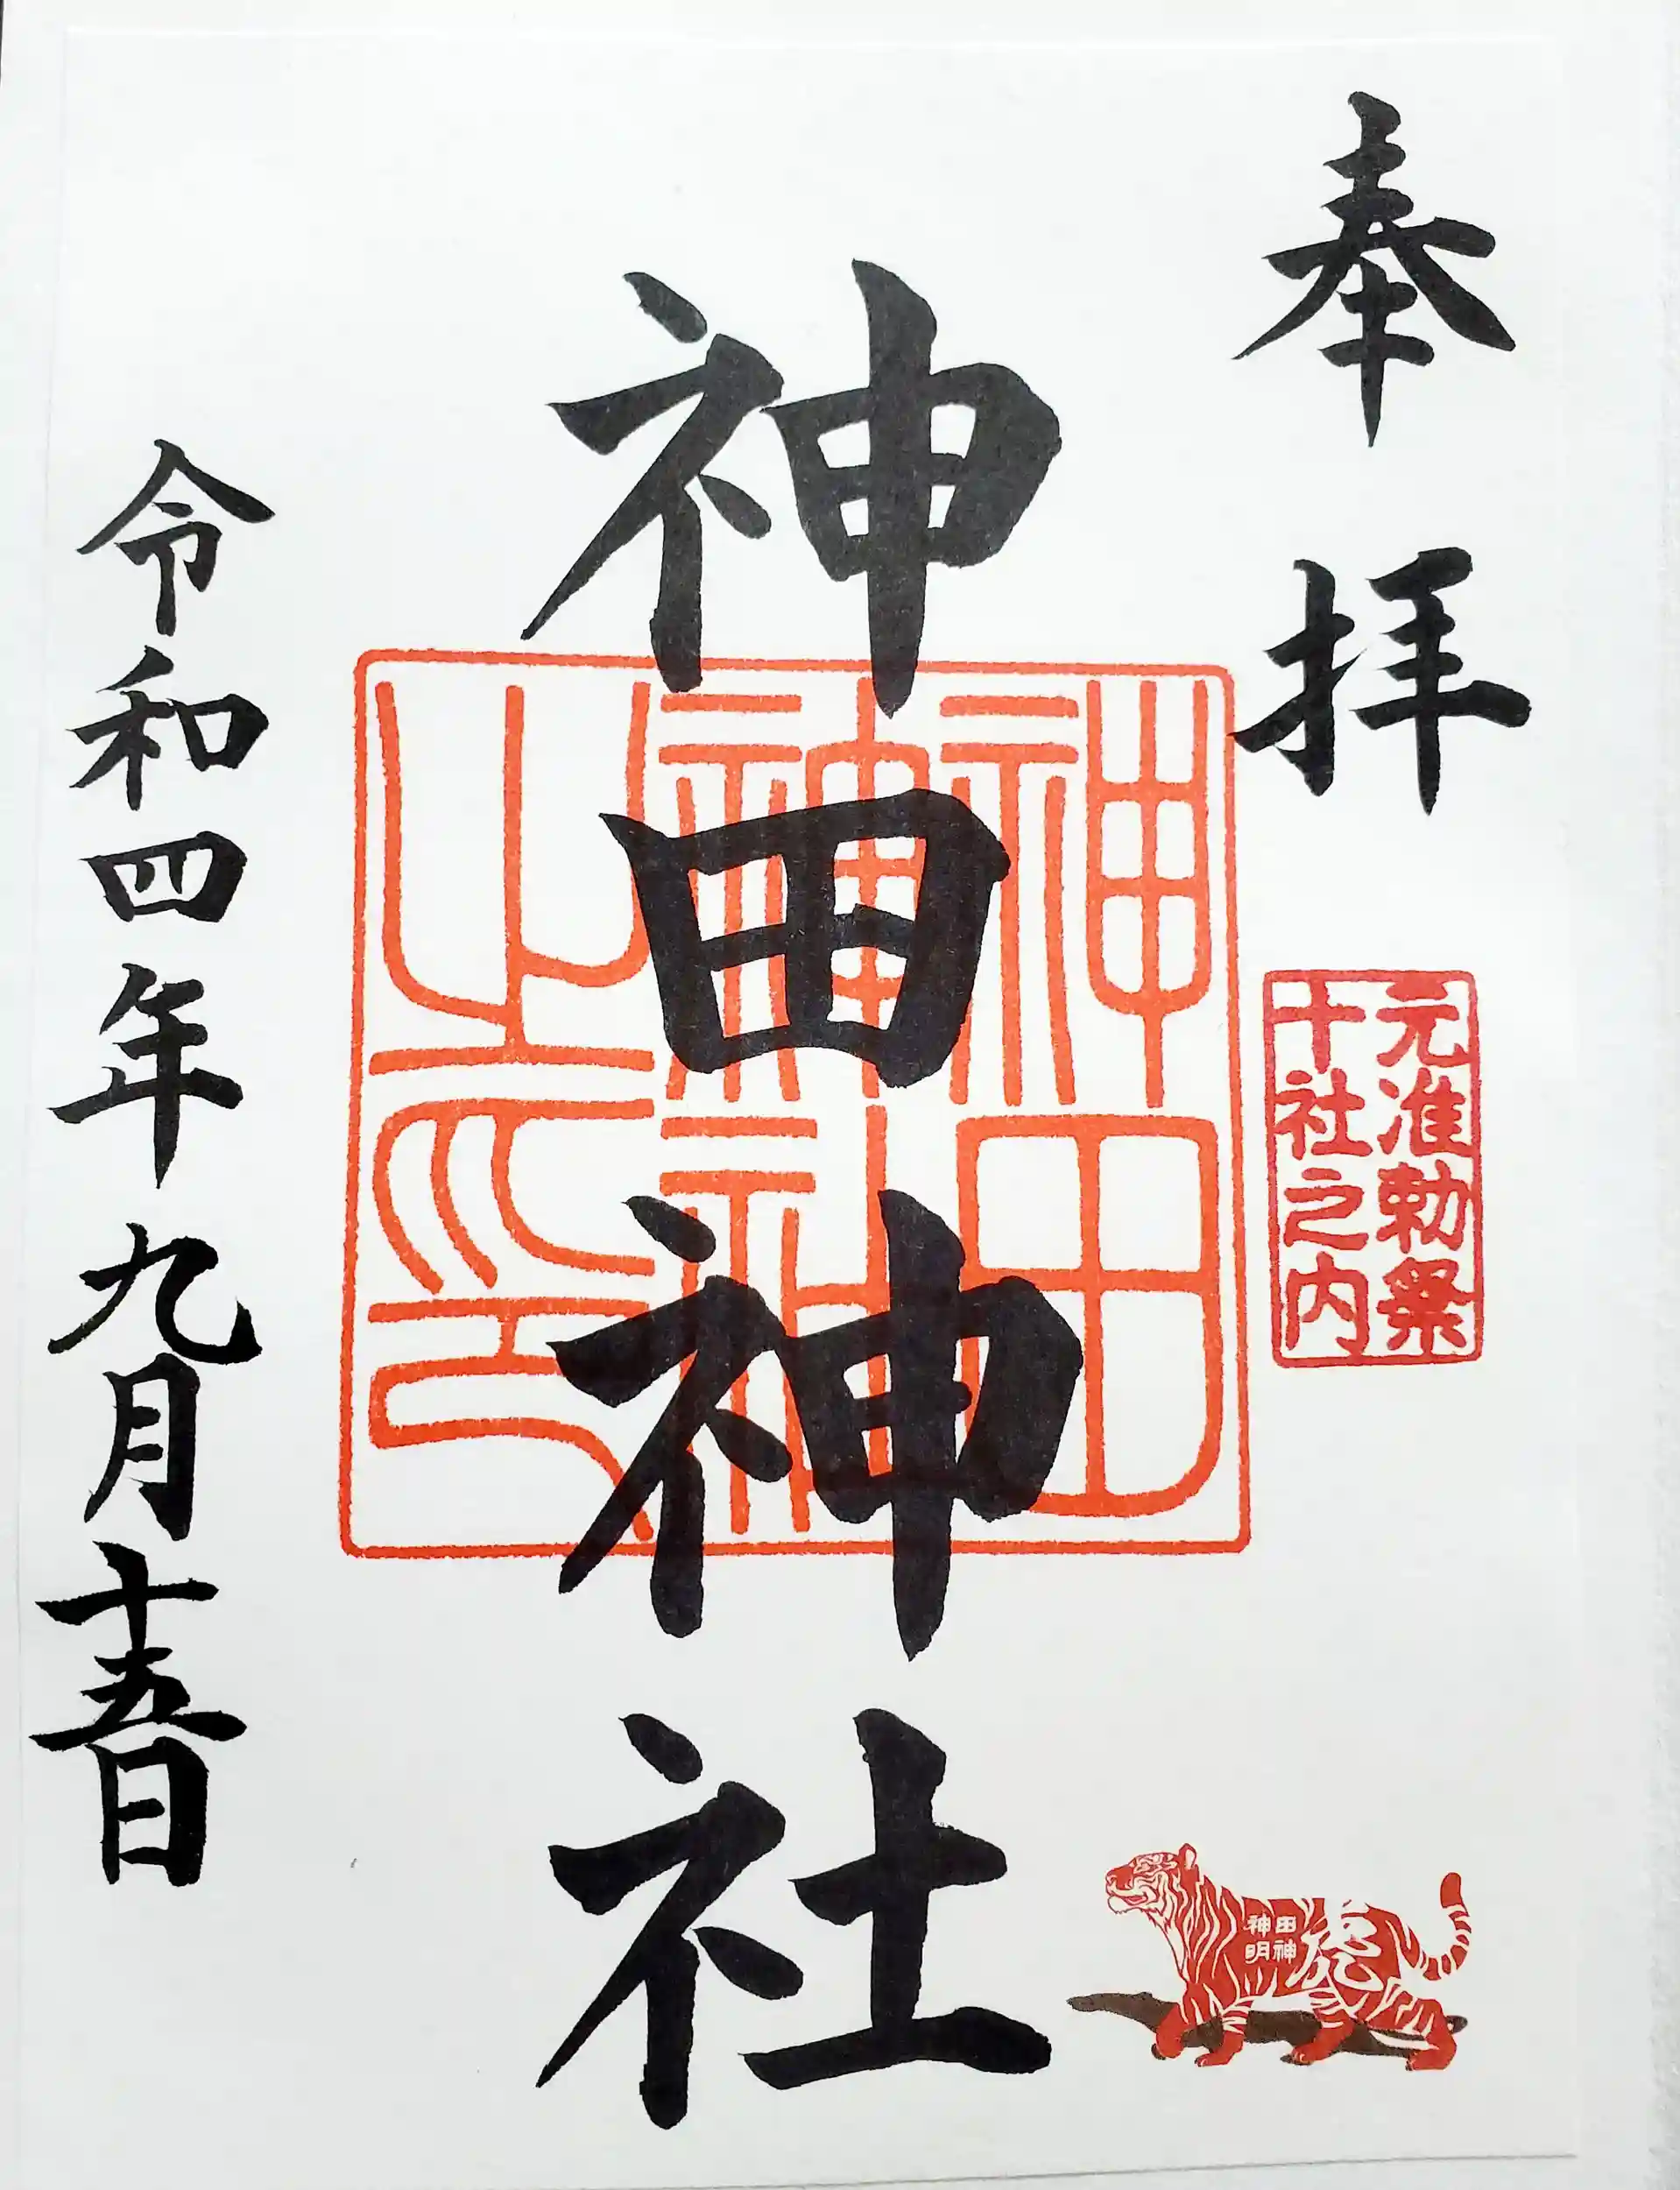 奉拝
元准勅祭
十社之内
神田神社
神田
神社
之印
神田
明神
虎
令和四年九月十五日